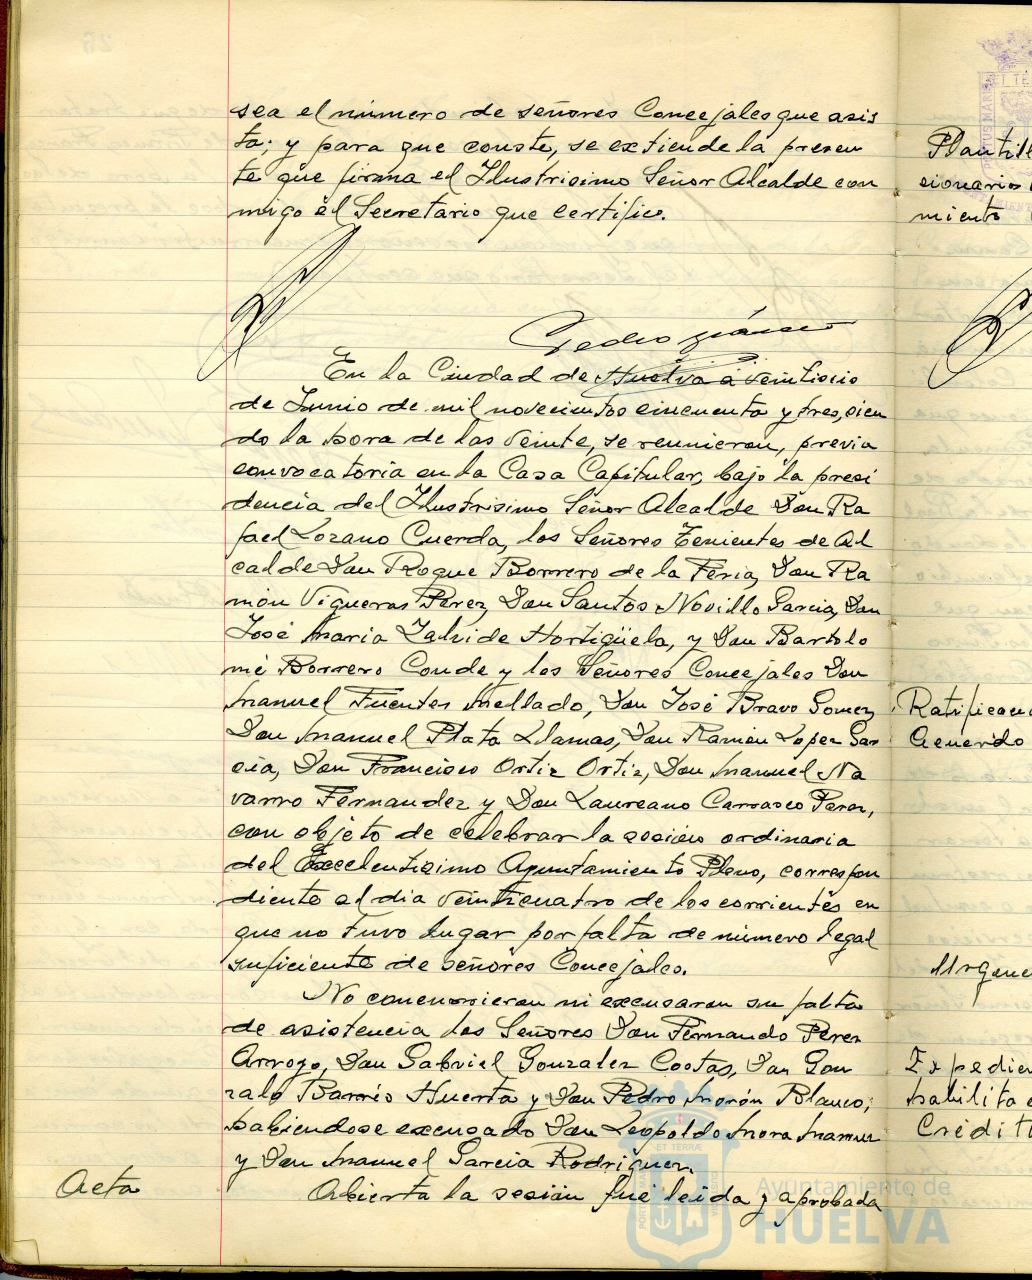 sea el número de señores Concejales que asis
ta; y para que conste, se extiende la presen
te que firma el Ilustrisimo Señor Alcalde con
migo el Secretario que certifico.
Pedro
En la Ciudad de Huelva a veintiseis
de Junio de mil novecientos cincuenta y tres, sien
do la hora de las veinte, se reunieron, previa
convocatoria en la Casa Capitular, bajo la presi
dencia del Ilustrisimo Señor Alcalde Don Ra
fael Lozano Cuerda, los Señores Tenientes de Al
calde Don Roque Borrero de la Feria, Don Ra
món Vigueras Perez, Don Santos Novillo Garcia, Don
José Maria Zalvide Hortigüela, y Don Bartolo
mé Borrero Conde y los Señores Concejales Don
Manuel Fuentes Mellado, Don José Bravo Gomez,
Don Manuel Plata Llamas, Don Ramón Lopez Gar
cia, Don Francisco Ortiz Ortiz, Don Manuel Na
varro Fernandez y Don Laureano Carrasco Perez,
con objeto de celebrar la sesión ordinaria
del Excelentisimo Ayuntamiento Pleno, correspon
diente al dia veinticuatro de los corrientes en
que no tuvo lugar por falta de número legal
suficiente de señores Concejales.
No concurrieron ni excusaron su falta
de asistencia los Señores Don Fernando Perez
Arroyo, Don Gabriel Gonzalez Costas, Don Gon
zalo Barrio Huerta y Don Pedro Morón Blanco;
habiendose excusado Don Leopoldo Mora
y Don Manuel Garcia Rodriguez.
Acta
Abierta la sesión fué leida y aprobada
Plantill
cionarios
miento
Ratificaci
Acuerdo
Urgenc
Expedien
habilita
Crédit
Ayuntamiento de
HUELVA